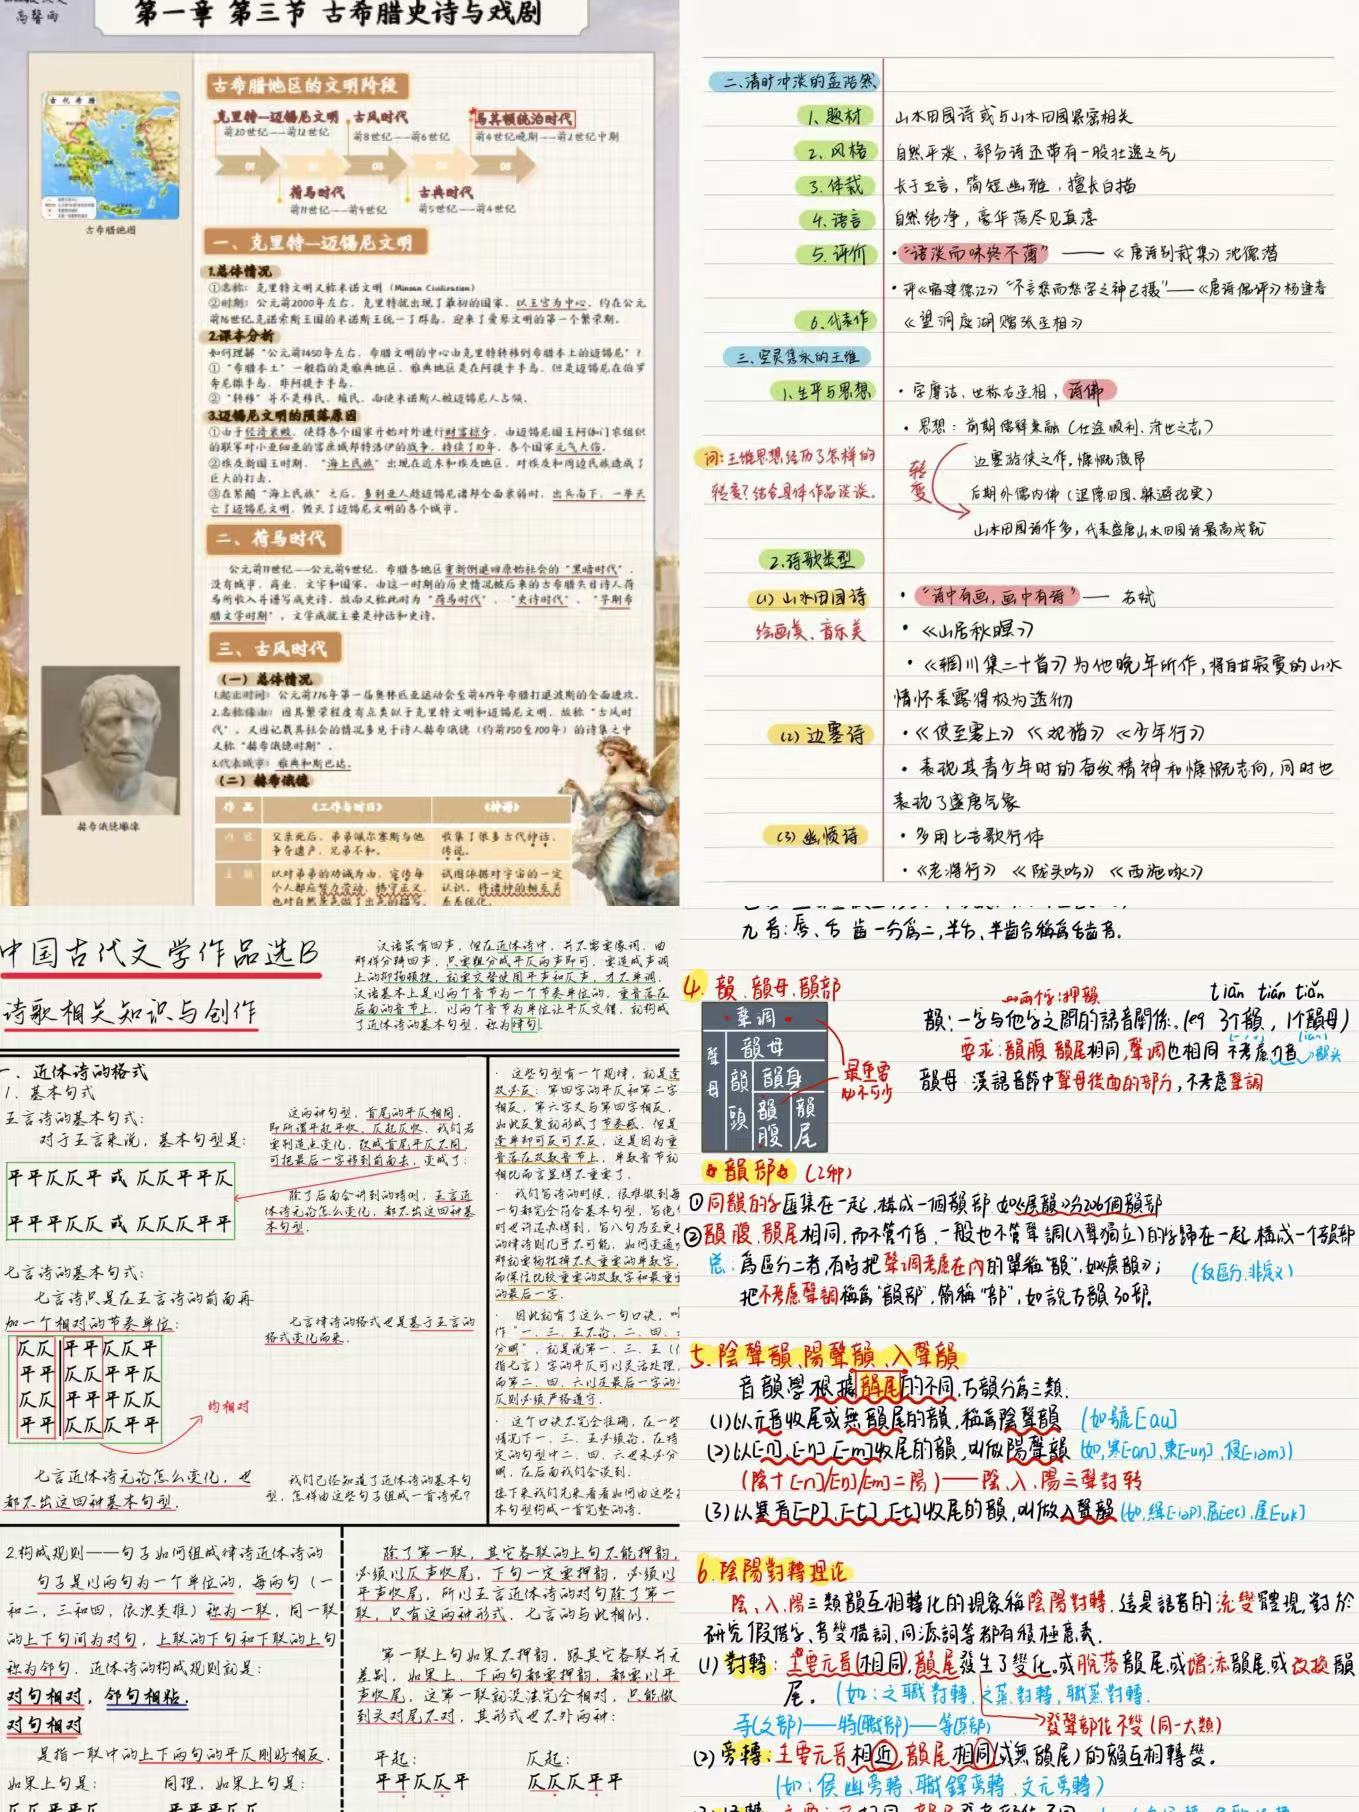 高馨雨
第一章 第三节 古希腊史诗与戏剧
古代希腊
古希腊地图
古希腊地区的文明阶段
克里特—迈锡尼文明
前20世纪——前12世纪
古风时代
前8世纪——前6世纪
马其顿统治时代
前4世纪晚期——前2世纪中期
01
03
05
荷马时代
前11世纪——前9世纪
古典时代
前5世纪——前4世纪
一、克里特—迈锡尼文明
1.总体情况
①名称：克里特文明又称米诺文明（Minoan Civilization）
②时期：公元前2000年左右，克里特就出现了最初的国家，以王宫为中心，约在公元
前16世纪克诺索斯王国的米诺斯王统一了群岛，迎来了爱琴文明的第一个繁荣期。
2.课本分析
如何理解“公元前1450年左右，希腊文明的中心由克里特转移到希腊本土的迈锡尼”？
①“希腊本土”一般指的是雅典地区，雅典地区是在阿提卡半岛，但是迈锡尼在伯罗
奔尼撒半岛，非阿提卡半岛。
②“转移”并不是移民、殖民，而使米诺斯人被迈锡尼人占领。
3.迈锡尼文明的陨落原因
①由于经济衰败，使得各个国家开始对外进行财富掠夺，由迈锡尼国王阿伽门农组织
的联军对小亚细亚的富庶城邦特洛伊的战争，持续了10年，各个国家元气大伤。
②埃及新国王时期，“海上民族”出现在近东和埃及地区，对埃及和周边民族造成了
巨大的打击。
③在紧随“海上民族”之后，多利亚人趁迈锡尼诸邦全面衰弱时，出兵南下，一举灭
亡了迈锡尼文明，毁灭了迈锡尼文明的各个城市。
二、荷马时代
公元前11世纪——公元前9世纪，希腊各地区重新倒退回原始社会的“黑暗时代”，
没有城市、商业、文字和国家。由这一时期的历史情况被后来的古希腊失目诗人荷
马所收入并谱写成史诗，故而又称此时为“荷马时代”、“史诗时代”、“早期希
腊文学时期”，文学成就主要是神话和史诗。
三、古风时代
（一）总体情况
1.起止时间：公元前776年第一届奥林匹亚运动会至前479年希腊打退波斯的全面进攻。
2.名称缘由：因其繁荣程度有点类似于克里特文明和迈锡尼文明，故称“古风时
代”，又因记载其社会的情况多见于诗人赫希俄德（约前750至700年）的诗集之中
又称“赫希俄德时期”。
3.代表城市：雅典和斯巴达。
（二）赫希俄德
赫希俄德雕像
作品 《工作与时日》 《神谱》
父亲死后，弟弟佩尔塞斯与他
争夺遗产，兄弟不和。
收集了很多古代神话、
传说。
以对弟弟的劝诫为由，宣传每
个人都应努力劳动，恪守正义，
也对自然景色做了出色的描写。
试图依据对宇宙的一定
认识，将诸神的相互关
系系统化。
二、清时冲淡的孟浩然
1.题材 山水田园诗或与山水田园紧密相关
2.风格 自然平淡，部分诗还带有一股壮逸之气
3.体裁 长于五言，简短幽雅，擅长白描
4.语言 自然纯净，豪华落尽见真淳
5.评价 ·“语淡而味终不薄” ——《唐诗别裁集》沈德潜
·评《宿建德江》“不言愁而愁字之神已摄”——《唐诗偶评》杨逢春
6.代表作 《望洞庭湖赠张丞相》
三、空灵隽永的王维
1.生平与思想 ·字摩诘，世称右丞相，诗佛
·思想：前期儒释兼融（仕途顺利，济世之志）
边塞游侠之作，慷慨激昂
问：王维思想经历了怎样的
转变？结合具体作品谈谈。
转变
后期外儒内佛（退隐田园、躲避现实）
山水田园诗作多，代表盛唐山水田园诗最高成就
2.诗歌类型
（1）山水田园诗 ·“诗中有画，画中有诗”——苏轼
绘画美、音乐美 ·《山居秋暝》
·《辋川集二十首》为他晚年所作，将自甘寂寞的山水
情怀表露得极为透彻
（2）边塞诗 ·《使至塞上》《观猎》《少年行》
·表现其青少年时的奋发精神和慷慨志向，同时也
表现了盛唐气象
（3）幽愤诗 ·多用七言歌行体
·《老将行》《陇头吟》《西施咏》
中国古代文学作品选B
诗歌相关知识与创作
汉语虽有四声，但在近体诗中，并不需要像词、曲
那样分辨四声，只要粗分成平仄两声即可。要造成声调
上的抑扬顿挫，就要交替使用平声和仄声，才不单调。
汉语基本上是以两个音节为一个节奏单位的，重音落在
后面的音节上。以两个音节为单位让平仄交错，就构成
了近体诗的基本句型，称为律句。
一、近体诗的格式
1. 基本句式
五言诗的基本句式：
对于五言来说，基本句型是：
平平仄仄平 或 仄仄平平仄
平平平仄仄 或 仄仄仄平平
这两种句型，首尾的平仄相同，
即所谓平起平收，仄起仄收。我们若
要制造点变化，改成首尾平仄不同，
可把最后一字移到前面去，变成了：
除了后面会讲到的特例，五言近
体诗无论怎么变化，都不出这四种基
本句型。
七言诗的基本句式：
七言诗只是在五言诗的前面再
加一个相对的节奏单位：
仄仄平平仄仄平
平平仄仄平平仄
仄仄平平平仄仄
平平仄仄仄平平
均相对
七言律诗的格式也是基于五言的
格式变化而来。
七言近体诗无论怎么变化，也
都不出这四种基本句型。
我们已经知道了近体诗的基本句
型，怎样由这些句子组成一首诗呢？
·这些句型有一个规律，就是逢
双必反：第四字的平仄和第二字
相反，第六字又与第四字相反，
如此反复就形成了节奏感。但是
逢单却可反可不反，这是因为重
音落在双数音节上，单数音节就
相比而言显得不重要了。
·我们写诗的时候，很难做到每
一句都完全符合基本句型，写绝句
时也许还办得到，写八句乃至更长
的律诗则几乎不可能。如何变通
那就要牺牲掉不太重要的单数字，
而保住比较重要的双数字和最重要
的最后一字。
·因此就有了这么一句口诀，叫
作“一、三、五不论，二、四、六
分明”，就是说第一、三、五（仅
指七言）字的平仄可以灵活处理，
而第二、四、六以及最后一字的平
仄则必须严格遵守。
·这个口诀不完全准确，在一些
情况下一、三、五必须论，在特
定的句型中二、四、六也未必分
明，在后面我们会谈到。
接下来我们先来看看如何由这些基
本句型构成一首完整的诗。
2.构成规则——句子如何组成律诗近体诗的
句子是以两句为一个单位的，每两句（一
和二，三和四，依次类推）称为一联，同一联
的上下句间为对句，上联的下句和下联的上句
称为邻句。近体诗的构成规则就是：
对句相对，邻句相粘。
对句相对
是指一联中的上下两句的平仄刚好相反。
如果上句是： 同理，如果上句是：
除了第一联，其它各联的上句不能押韵，
必须以仄声收尾，下句一定要押韵，必须以
平声收尾，所以五言近体诗的对句除了第一
联，只有这两种形式，七言的与此相似。
第一联上句如果不押韵，跟其它各联并无
差别，如果上、下两句都要押韵，都要以平
声收尾，这第一联就没法完全相对，只能做
到头对尾不对，其形式也不外两种：
平起： 仄起：
平平仄仄平 仄仄仄平平
九音：唇、舌 齒一分爲二，半舌、半齒合稱爲舌齒音。
4. 韻、韻母、韻部
聲調
聲母
韻母
韻頭
韻身
韻腹
韻尾
最重要
必不可少
→兩個字：押韻
tiān tián tiǎn
韻：一字与他字之間的語音關係。（例 3个韻，1个韻母）
要求：韻腹 韻尾相同，聲調也相同 不考慮介音 →韻头
韻母 漢語音節中聲母後面的部分，不考慮聲調
韻部（2种）
①同韻的字匯集在一起，構成一個韻部 如《廣韻》分206個韻部
②韻腹、韻尾相同，而不管介音，一般也不管聲調（入聲獨立）的字歸在一起，構成一个韻部
总：爲區分二者，有時把聲調考慮在内的單稱“韻”，如《廣韻》；
（仅區分，非定义）
把不考慮聲調稱爲“韻部”，簡稱“部”，如説古韻30部。
5. 陰聲韻、陽聲韻、入聲韻
音韻學根據韻尾的不同，古韻分爲三類.
（1）以元音收尾或無韻尾的韻，稱爲陰聲韻（如號[au]
（2）以[-n]、[-ŋ]、[-m]收尾的韻，叫做陽聲韻（如，寒[an]、東[uŋ]、侵[iəm]）
（陰+[-n]/[ŋ]/[m]=陽）——陰、入、陽三聲對转
（3）以塞音[-p]、[-t]、[-k]收尾的韻，叫做入聲韻
6. 陰陽對轉理论
陰、入、陽三類韻互相轉化的現象稱陰陽對轉. 這是語音的流變體現，對於
研究假借字、音變構詞、同源詞等都有積極意義.
（1）對轉：主要元音相同，韻尾發生了變化，或脱落韻尾，或增添韻尾，或改換韻
尾。（如：之職對轉，之蒸對轉，職蒸對轉.
寺（之部）——特（職部）——等（蒸部）
→發聲部位不變（同一大類）
（2）旁轉：主要元音相近，韻尾相同（或無韻尾）的韻互相轉變。
（如：侯幽旁轉、職鐸旁轉、文元旁轉）